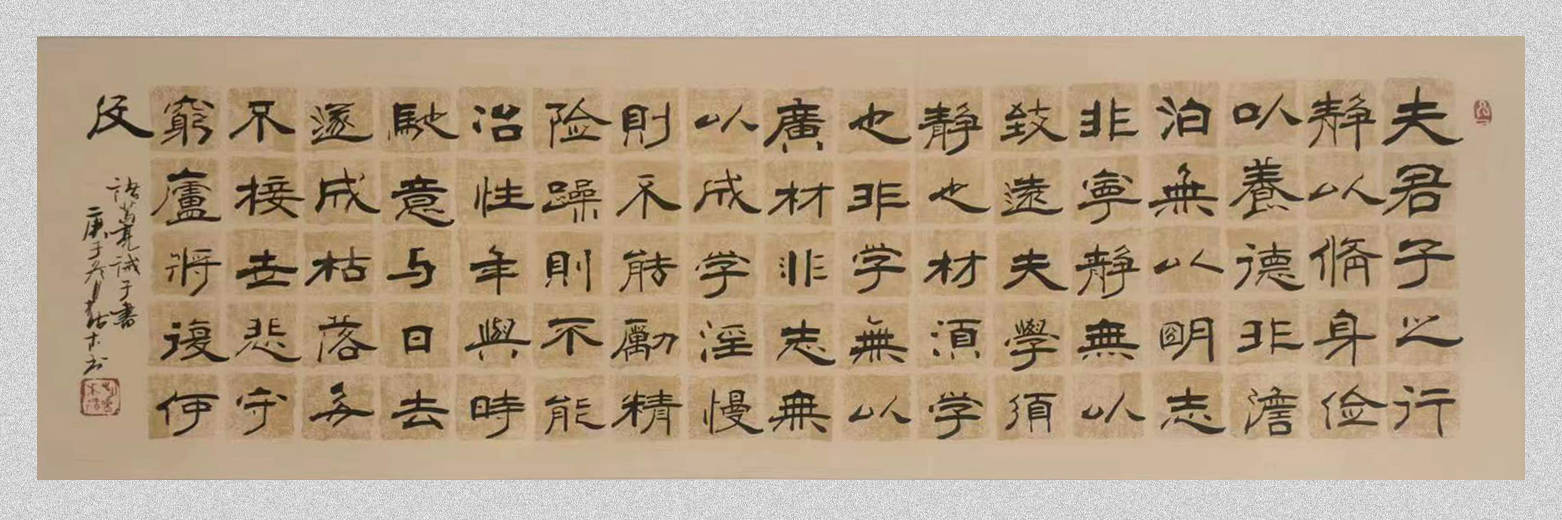 夫君子之行
静以脩身俭
以養德非澹
泊無以明志
非寧静無以
致遠夫學須
静也材須学
也非学無以
廣材非志無
以成学淫慢
則不能勵精
险躁則不能
治性年與時
馳意与日去
遂成枯落多
不接世悲守
窮廬将復何
及
诸葛亮诫子書
庚子